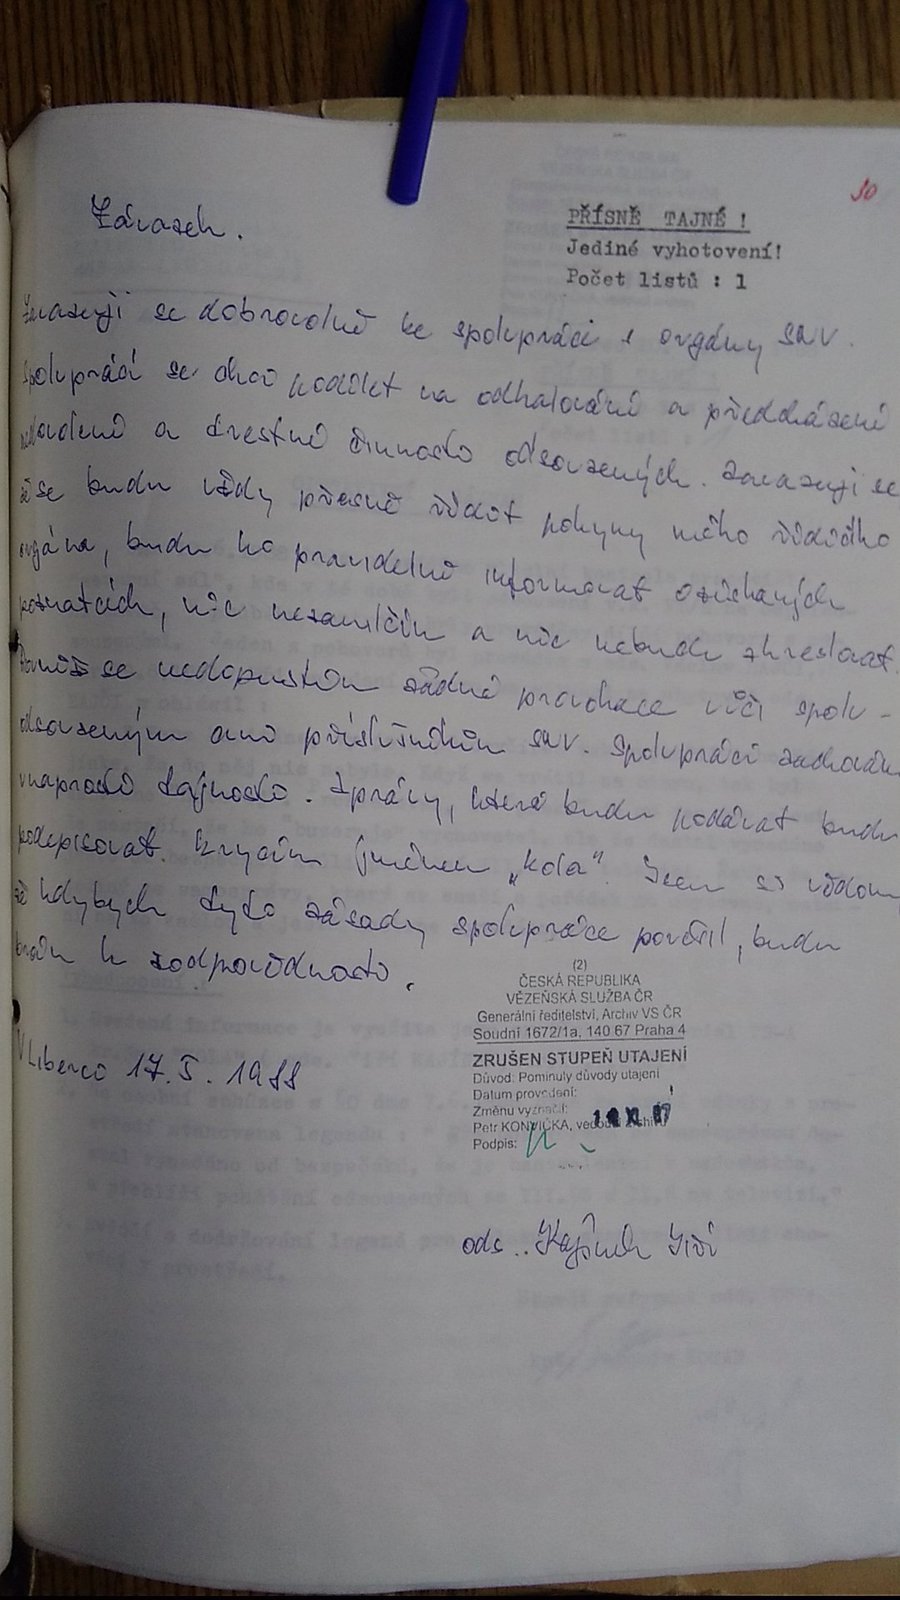 10
Závazek.
PŘÍSNĚ TAJNÉ !
Jediné vyhotovení!
Počet listů : 1
Zavazuji se dobrovolně ke spolupráci s orgány SNV.
Spoluprácí se chci podílet na odhalování a předcházení
nedovolené a trestné činnosti odsouzených. Zavazuji se
že se budu vždy přesně řídit pokyny mého řídícího
orgána, budu ho pravidelně informovat o získaných
poznatcích, nic nezamlčím a nic nebudu zkreslovat.
Rovněž se nedopustím žádné provokace vůči spolu-
odsouzeným ani příslušníkům SNV. Spolupráci zachovám
v naprosté tajnosti. Zprávy, které budu podávat budu
podepisovat krycím jménem „Kola“. Jsem si vědom
že kdybych tyto zásady spolupráce porušil, budu
brán k zodpovědnosti.
V Liberci 17. 5. 1988
(2)
ČESKÁ REPUBLIKA
VĚZEŇSKÁ SLUŽBA ČR
Generální ředitelství, Archiv VS ČR
Soudní 1672/1a, 140 67 Praha 4
ZRUŠEN STUPEŇ UTAJENÍ
Důvod: Pominuly důvody utajení
Datum provedení:
Změnu vyznačil:
Petr KONVIČKA, vedoucí archivu
Podpis:
ods. Kajínek Jiří